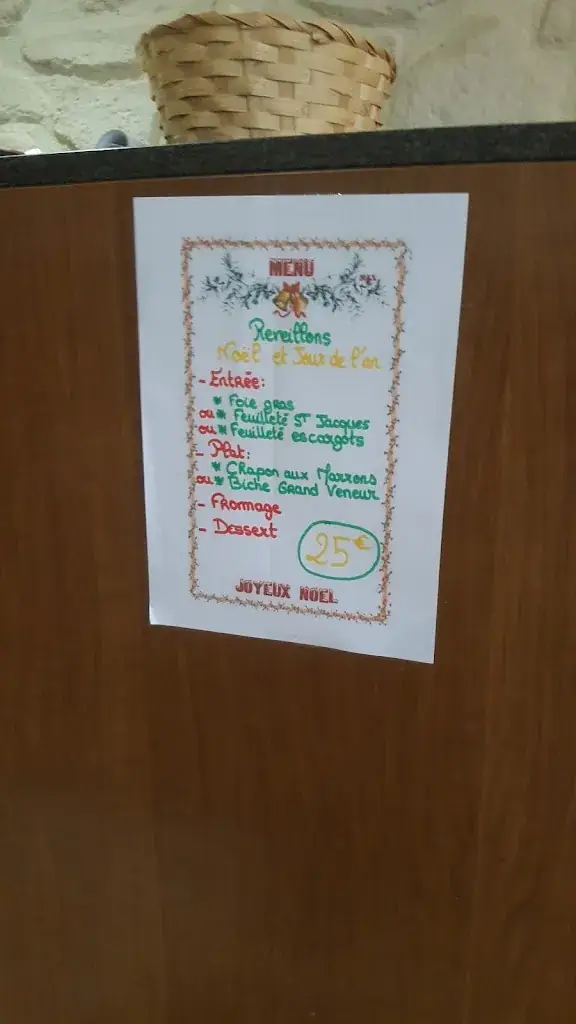 MENU
Reveillons
Noël et Jour de l'an
- Entrée:
* Foie gras
ou * Feuilleté ST Jacques
ou * Feuilleté escargots
- Plat:
* Chapon aux Marrons
ou * Biche Grand Veneur
- Fromage
- Dessert
25€
JOYEUX NOEL